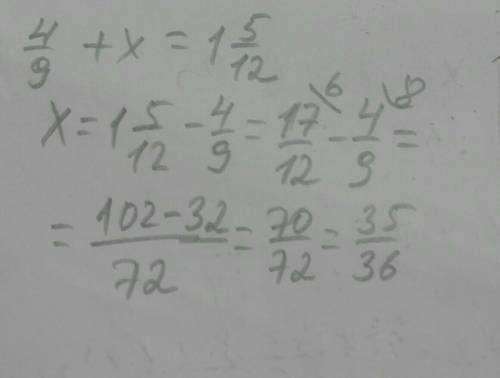 4/9 + x = 1 5/12
x = 1 5/12 - 4/9 = 17/12 \6 - 4/9 \8 =
= 102-32/72 = 70/72 = 35/36